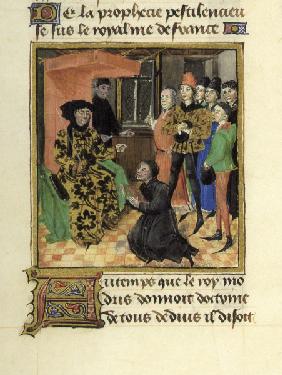 De la prophecie pestilencieu
se sus le royalme de france
Au temps que le roy mo
dus donnoit doctrine
de tous deduis il disoit